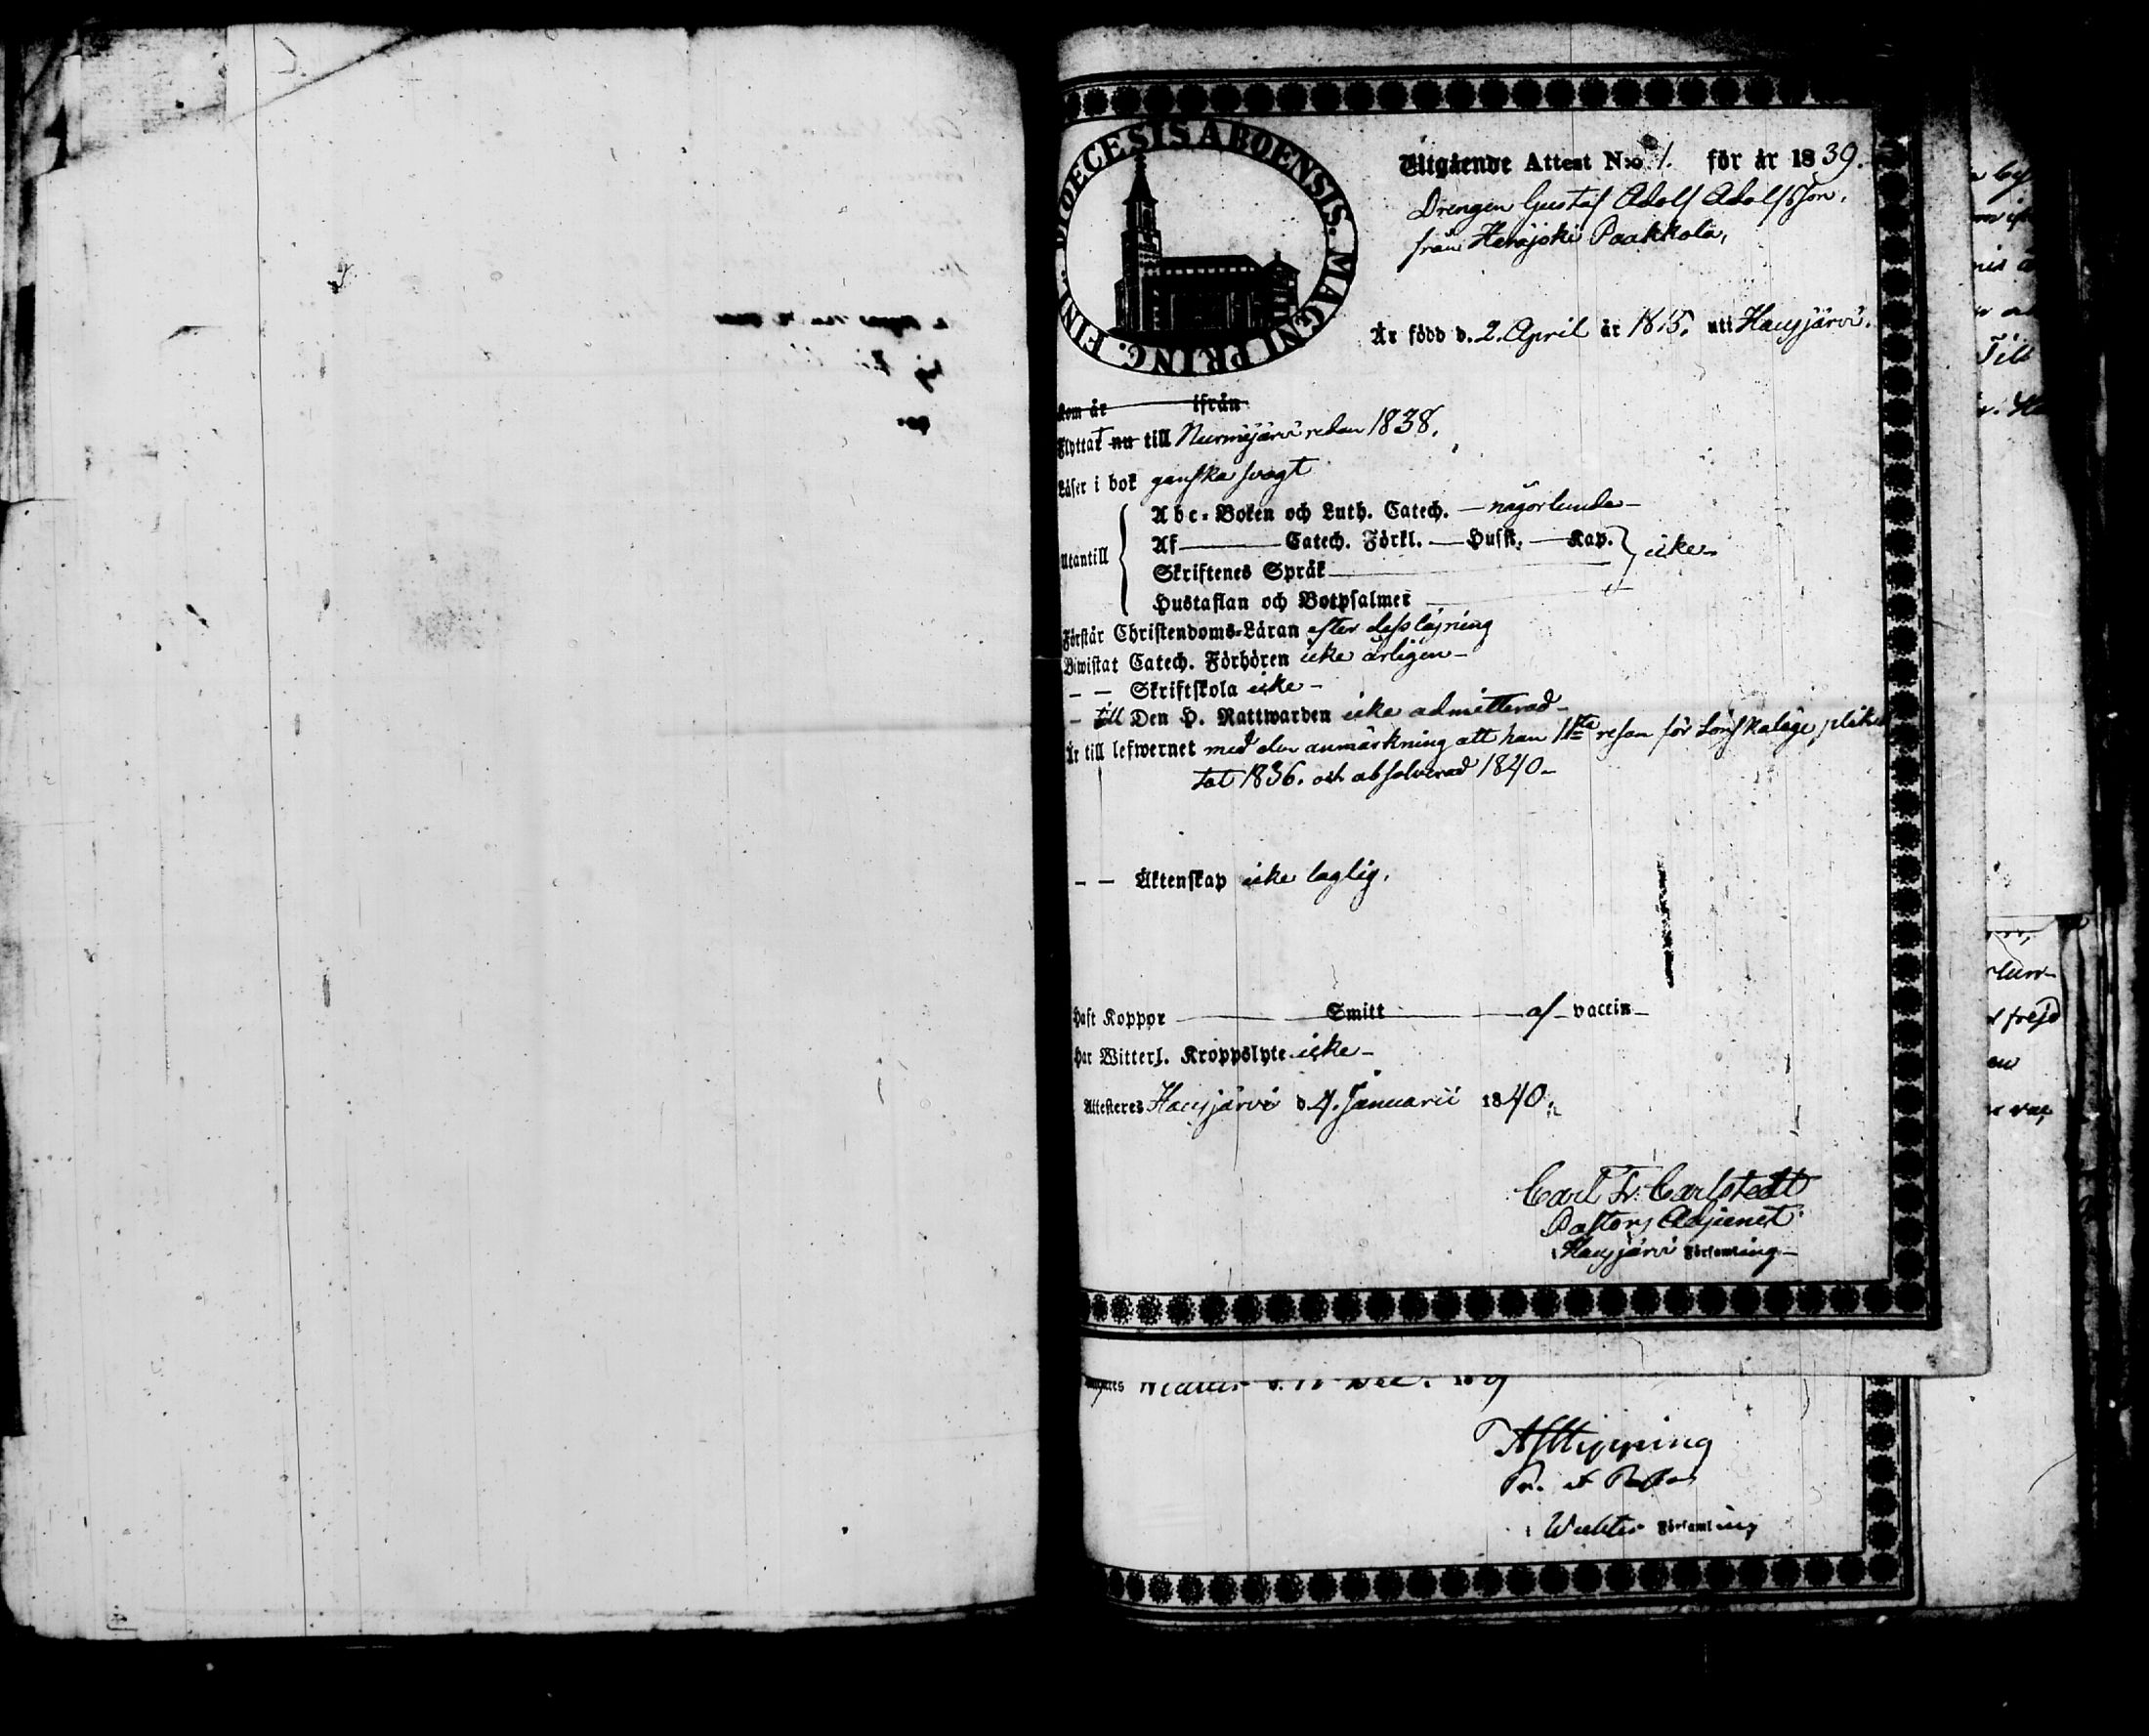 DIOECESIS ABOENSIS. MAGNI PRINC. FINL.
Utgående Attest N:o 1. för år 1839.
Drengen Gustaf Adolf Adolfsson,
från Herajoki Paakkola,
Är född d. 2. April år 1815. uti Hausjärvi.
Kom år ifrån
Flyttat nu till Nurmijärvi redan 1838.
Läser i bok ganska svagt
Abc-Boken och Luth. Catech. — någorlunda —
Utantill
Af — Catech. Förkl. — Husk. — Kap. icke —
Skriftenes Språk
Hustaflan och Botpsalmer
Förstår Christendoms-Läran efter dess läsning
Biwistat Catech. Förhören icke årligen —
— — Skriftskola icke —
— till Den H. Nattwarden icke admitterad —
Är till lefwernet med den anmärkning att han 1sta resan för Lönskaläge plik-
tat 1836. och absolverad 1840 —
— — Äktenskap icke laglig.
Haft Koppor — Smitt — af — vaccin —
Har Witterl. Kroppslyte icke —
Attesteres Hausjärvi d. 4. Januarii 1840.
Carl Fr. Carlstedt
Pastors Adjunct
i Hausjärvi Församling —
Pr. et Pastor
i Församling